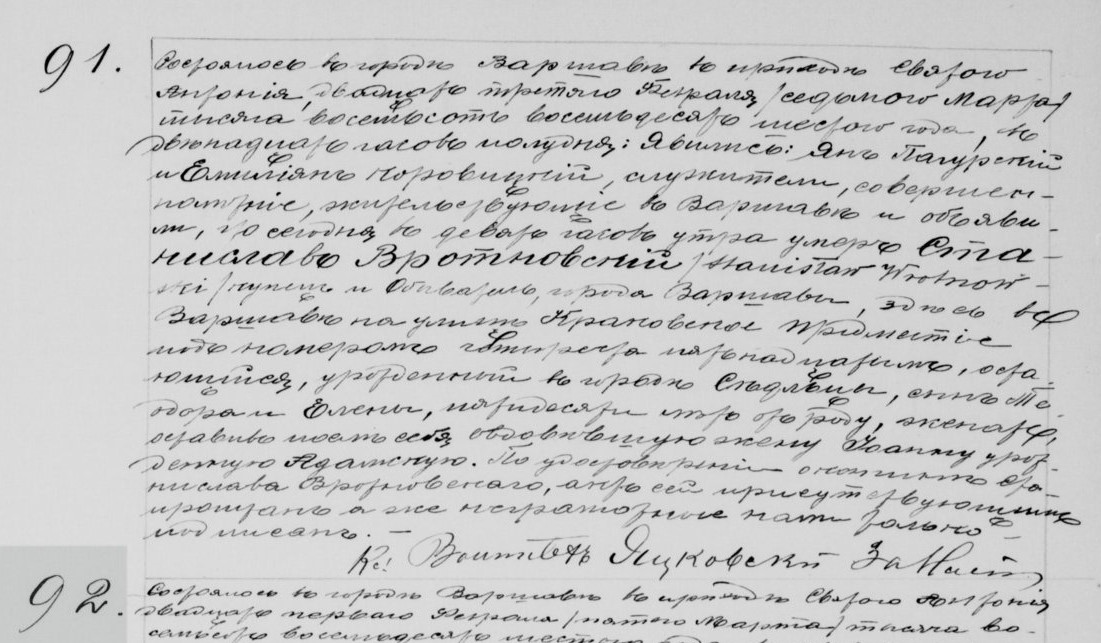 91.
Состоялось въ городѣ Варшавѣ въ приходѣ Святого
Антонія, двадцать третяго Февраля /седьмого Марта/
тысяча восемьсотъ восемьдесятъ шестого года, въ
двѣнадцать часовъ полудня: Явились: Янъ Пагурскій
и Емиліянъ Коровицкій, служители, совершен-
нолѣтніе, жительствующіе въ Варшавѣ и объяви-
ли, что сегодня въ девять часовъ утра умеръ Ста-
ниславъ Вротновскій /Stanisław Wrotnow-
ski/ купецъ и Обыватель, города Варшавы, здѣсь въ
Варшавѣ на улицѣ Краковское Предмѣстіе
подъ номеромъ четыреста пятьнадцатымъ, оста-
ющійся, урожденный въ городѣ Сѣдльцы, сынъ Те-
одора и Елены, пятидесяти лѣтъ отъ роду, женатъ,
оставивъ послѣ себя овдовѣвшую жену Іоанну урож-
денную Адамскую. По удостовѣреніи о кончинѣ Ста-
нислава Вротновскаго, актъ сей присутствующимъ
прочтанъ а же неграмотные нами только
подписанъ. —
Кс: Яцковскій За Наст
92.
Состоялось въ городѣ Варшавѣ въ приходѣ Святого Антонія
двадцать перваго Февраля /пятаго Марта/ тысяча во-
семьсотъ восемьдесятъ шестого